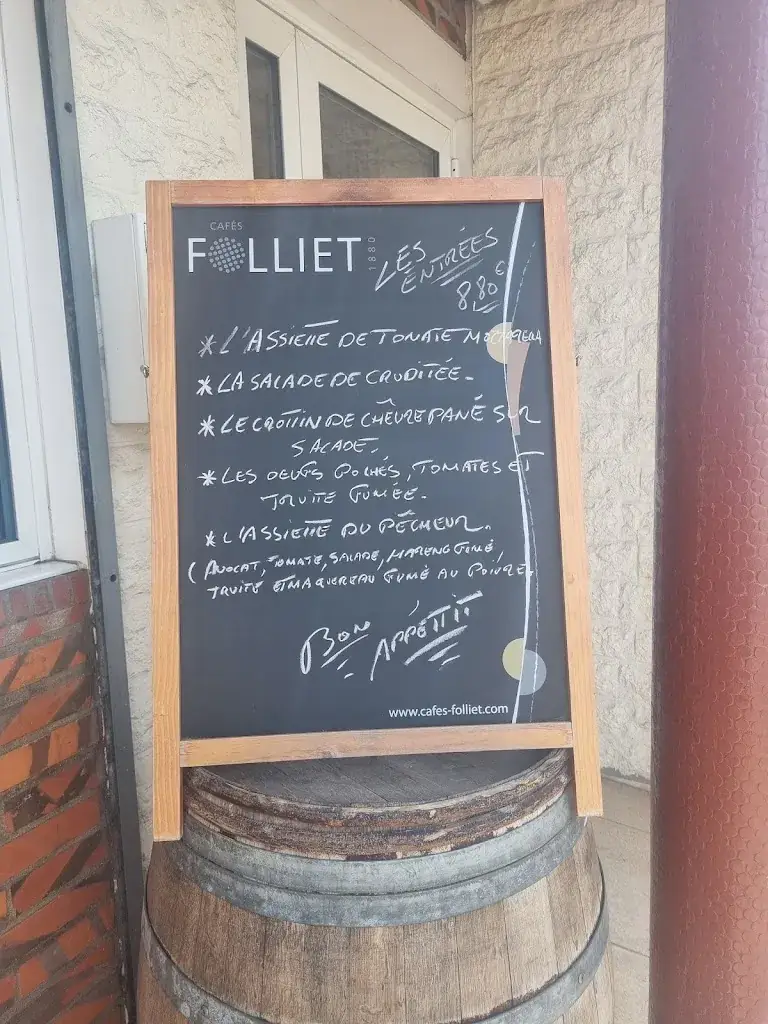 CAFÉS
FOLLIET 1880
LES
ENTRÉES
8,80€
* L'ASSIETTE DE TOMATE MOZZARELA
* LA SALADE DE CRUDITÉE.
* LE CROTTIN DE CHÊVRE PANÉ SUR
SALADE.
* LES OEUFS POCHÉS, TOMATES ET
TRUITE FUMÉE.
* L'ASSIETTE DU PÊCHEUR.
(AVOCAT, TOMATE, SALADE, HARENG FUMÉ,
TRUITE ET MAQUEREAU FUMÉ AU POIVRE.
BON APPÉTIT
www.cafes-folliet.com